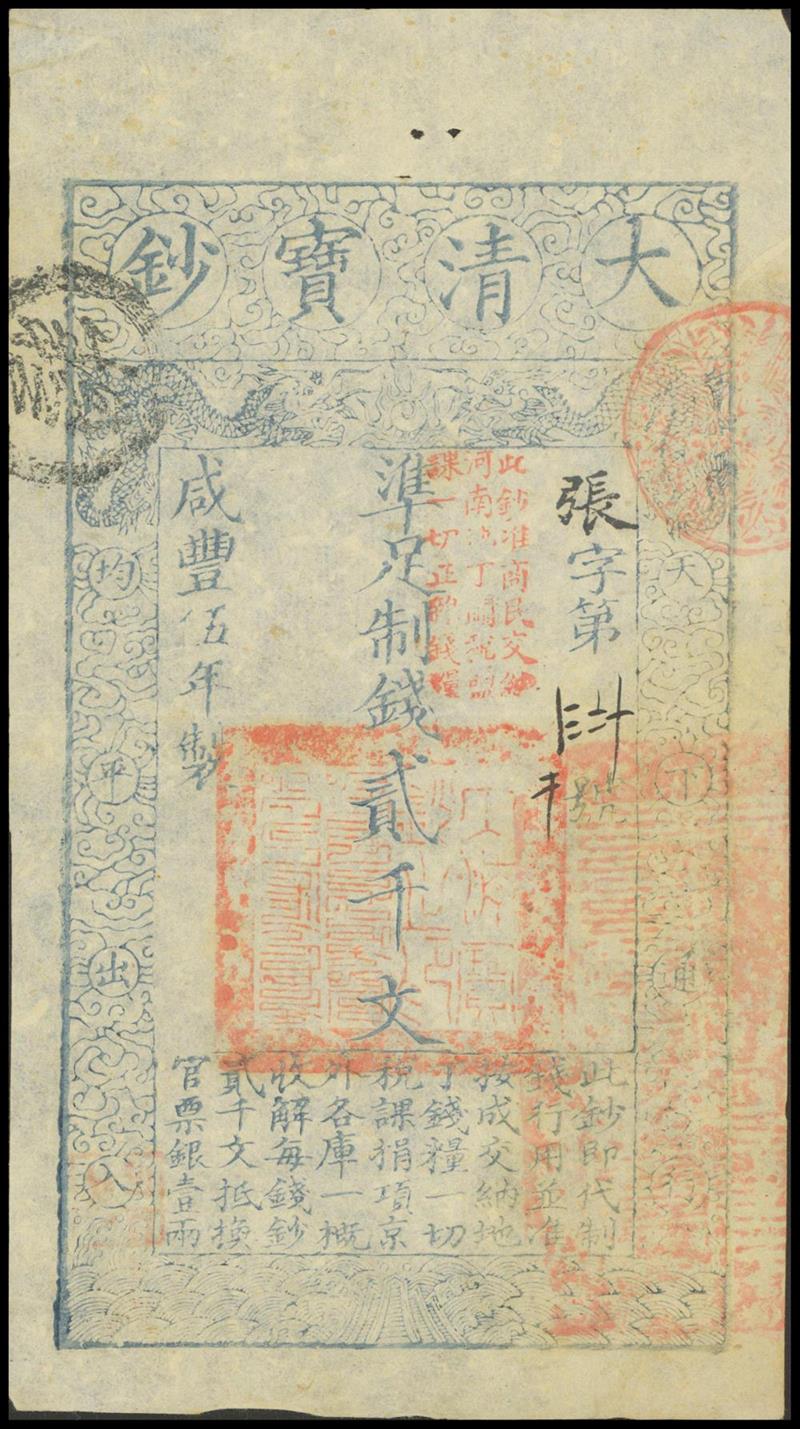 大清寶鈔
天下通行
均平出入
張字第
號
此鈔准商民交納
河南
課一切正雜錢糧
準足制錢貳千文
咸豐伍年製
此鈔即代制
錢行用並准
按成交納地
丁錢糧一切
稅課捐項京
外各庫一概
收解每錢鈔
貳千文抵換
官票銀壹兩